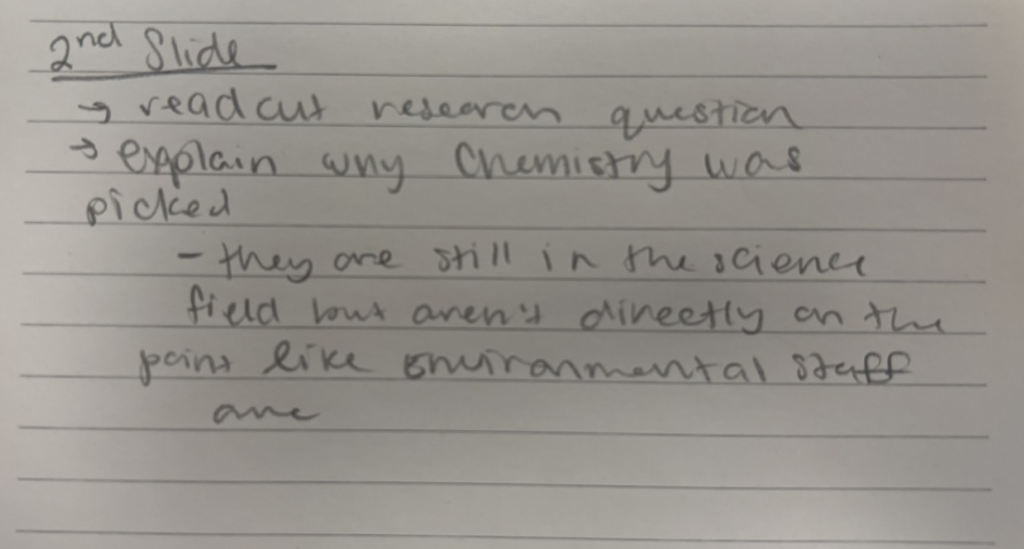 2nd Slide
→ read out research question
→ explain why Chemistry was
picked
- they are still in the science
field but aren't directly on the
point like environmental staff
are